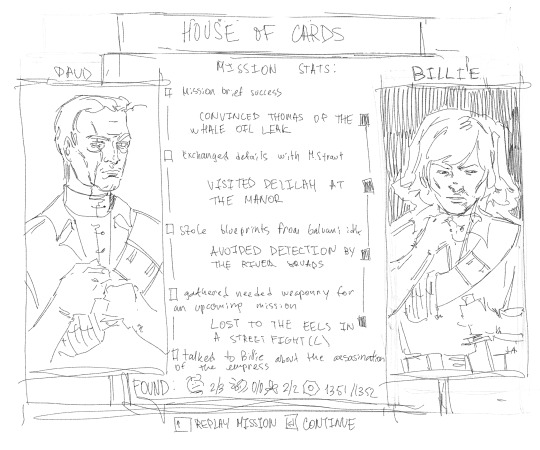 HOUSE OF CARDS
DAUD
MISSION STATS:
BILLIE
Mission brief success
CONVINCED THOMAS OF THE
WHALE OIL LEAK
Exchanged details with M.Straut
VISITED DELILAH AT
THE MANOR
Stole blueprints from Galvani idk
AVOIDED DETECTION BY
THE RIVER SQUADS
gathered needed weaponry for
an upcoming mission
LOST TO THE EELS IN
A STREET FIGHT
talked to Billie about the assasination
of the empress
FOUND: 2/3 0/0 2/2 1351/1352
REPLAY MISSION CONTINUE